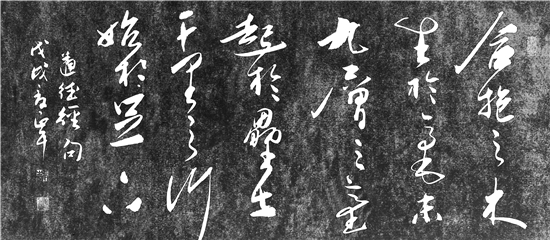 合抱之木
生於毫末
九層之臺
起於壘土
千里之行
始於足下
道德經句
戊戌